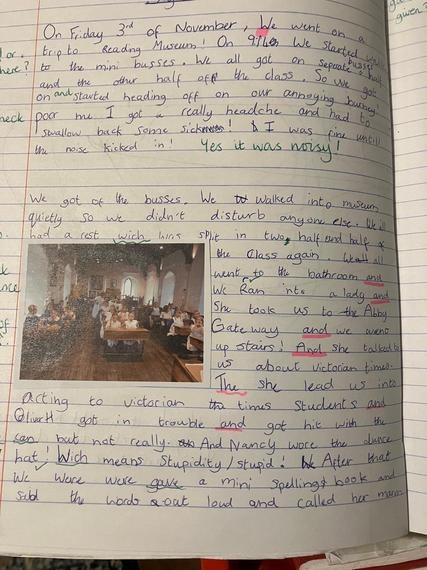 given?
On Friday 3rd of November, We went on a
trip to Reading Museum! On 9:16 We started
to the mini busses. We all got on separate busses half
and the other half off the class. So we got
on and started heading off on our annoying journey!
poor me I got a really headche and had to
swallow back some sickness! I was fine untill
the noise kicked in! Yes it was noisy!
here?
heck
We got of the busses. We walked into museum
quietly so we didn't disturb anyone else. We all
had a rest wich wins split in two, half and half of
the class again. We all
went to the bathroom and
We Ran into a lady and
She took us to the Abby
Gateway and we went
up stairs! And she talked to
us about victorian times.
The she lead us into
acting to victorian times students and
Oliver H got in trouble and got hit with the
can but not really. And Nancy wore the dunce
hat! Wich means Stupidity/stupid! After that
We were were gave a mini spellings book and
said the words out loud and called her mam